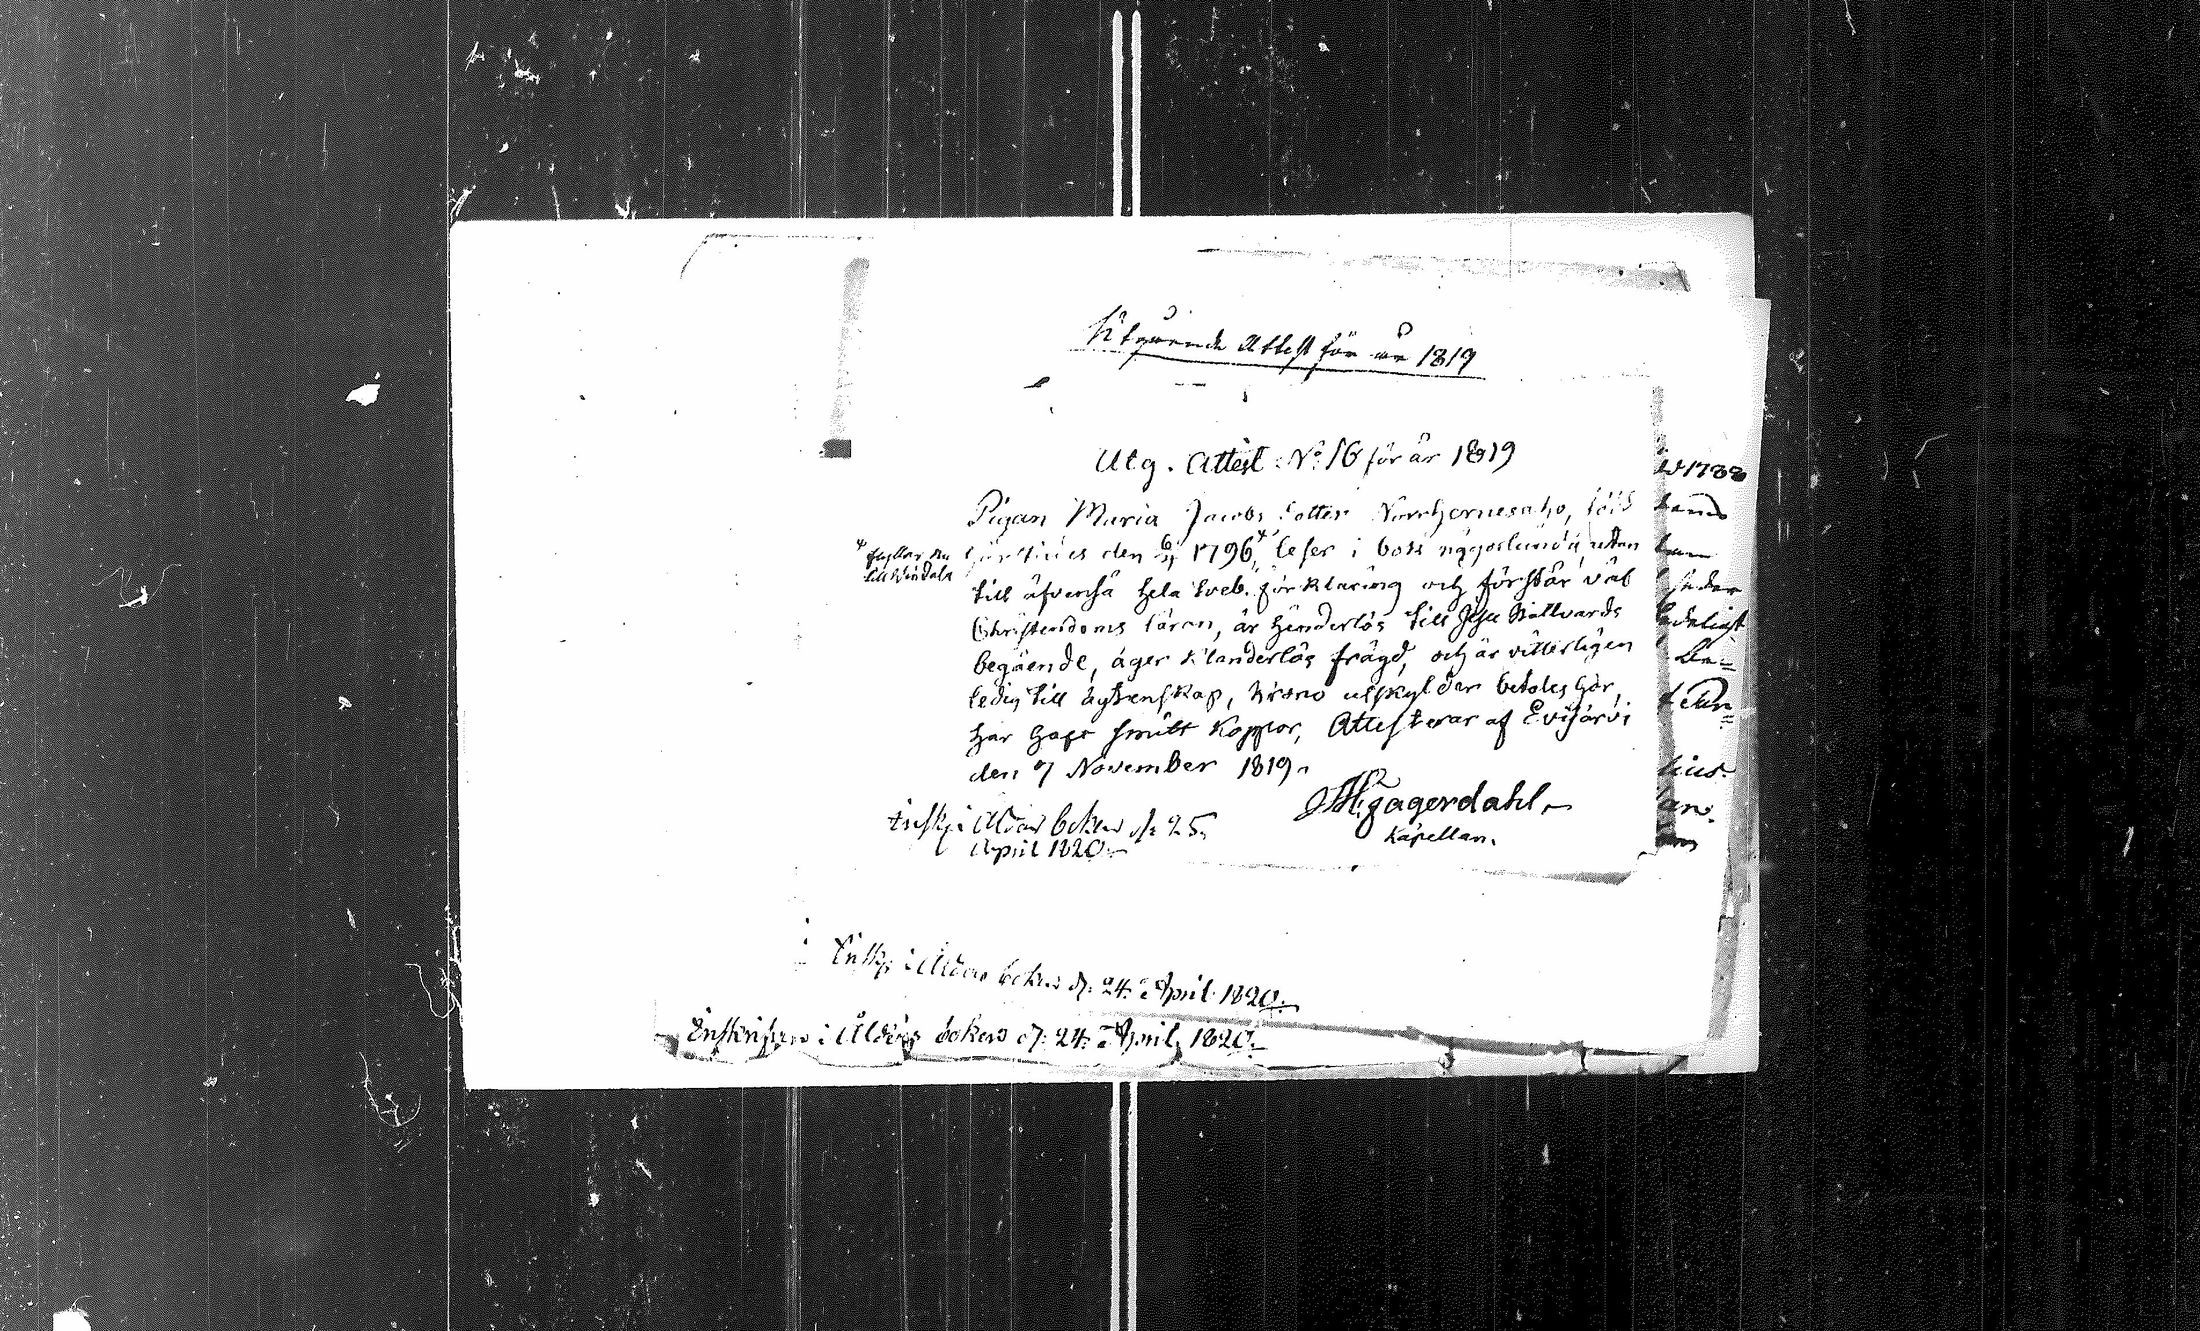 Utgående Attest för år 1819
Utg. Attest N:o 16 för år 1819
Pigan Maria Jacobs dotter Norrhernesaho, föd
den 6/4 1796,* läser i bok utan
* flyttar nu
till Vindala
till äfvenså hela Sveb. förklaring och förstår väl
Christendoms läran, är hinderlös till Jesu Nattvards
begående, äger klanderlös frägd, och är vitterligen
ledig till ägtenskap, Krono utskylder betales här,
har haft Smått Koppor, Attesterar af Evijärvi
den 7 November 1819.
Hagerdahl
Kapellan.
Inskr. i Ålders boken d: 25
April 1820.
Inskr. i Ålders boken d: 24 April 1820.
Inskrifven i Ålders boken d: 24 April 1820.
1788